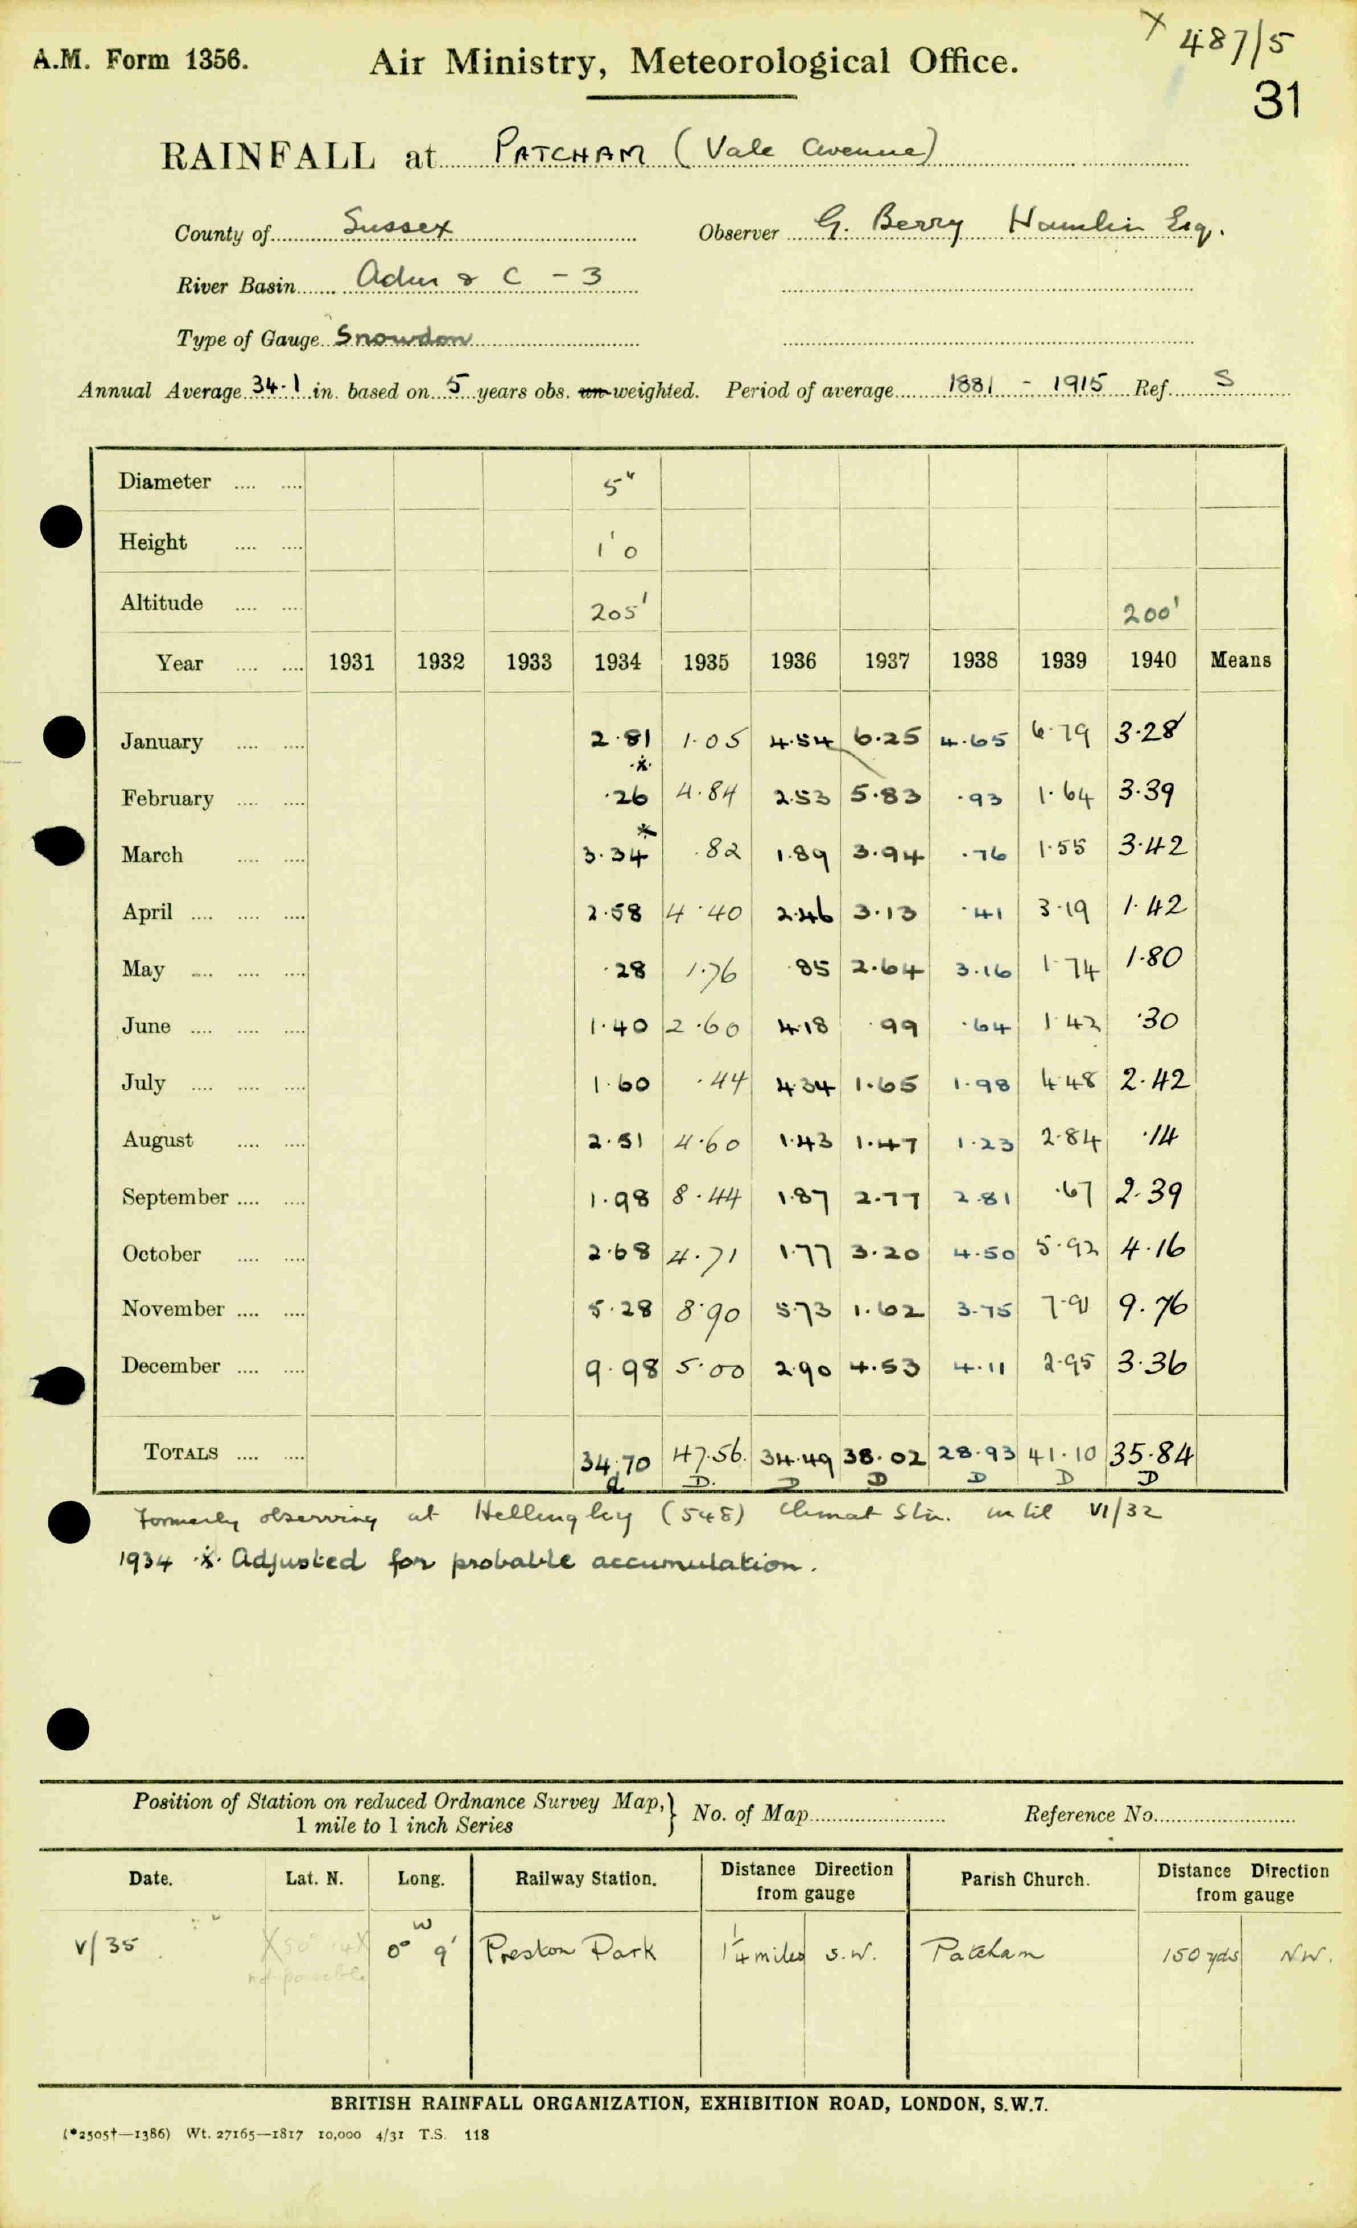 X 487/5
A.M. Form 1356. Air Ministry, Meteorological Office.
31
RAINFALL at PATCHAM (Vale Avenue)
County of Sussex Observer G. Berry Hamlin Esq.
River Basin Adur & C - 3
Type of Gauge Snowdon
Annual Average 34.1 in. based on 5 years obs. un-weighted. Period of average 1881 - 1915 Ref. S
Diameter 5"
Height 1'0
Altitude 205' 200'
Year 1931 1932 1933 1934 1935 1936 1937 1938 1939 1940 Means
January 2.81 1.05 4.54 6.25 4.65 6.79 3.28
February .26 4.84 2.53 5.83 .93 1.64 3.39
March 3.34 .82 1.89 3.94 .76 1.55 3.42
April 2.58 4.40 2.46 3.13 .41 3.19 1.42
May .28 1.76 .85 2.64 3.16 1.74 1.80
June 1.40 2.60 4.18 .99 .64 1.42 .30
July 1.60 .44 4.34 1.65 1.98 4.48 2.42
August 2.51 4.60 1.43 1.47 1.23 2.84 .14
September 1.98 8.44 1.87 2.77 2.81 .67 2.39
October 2.68 4.71 1.77 3.20 4.50 5.92 4.16
November 5.28 8.90 5.73 1.62 3.75 7.91 9.76
December 9.98 5.00 2.90 4.53 4.11 2.95 3.36
TOTALS 34.70 47.56 34.49 38.02 28.93 41.10 35.84
d D. D D D D D
Formerly observing at Hellingley (548) Climat Stn. until VI/32
1934 * Adjusted for probable accumulation.
Position of Station on reduced Ordnance Survey Map,} No. of Map Reference No.
1 mile to 1 inch Series
Date. Lat. N. Long. Railway Station. Distance Direction from gauge Parish Church. Distance Direction from gauge
V/35 X50° 14'X 0° 9' W Preston Park 1 1/4 miles S.W. Patcham 150 yds N.W.
not possible
BRITISH RAINFALL ORGANIZATION, EXHIBITION ROAD, LONDON, S.W.7.
(*2505†—1386) Wt. 27165—1817 10,000 4/31 T.S. 118